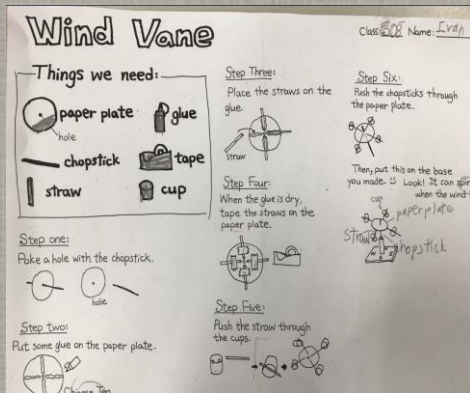 Wind Vane
Class: 308 Name: Ivan
Things we need:
paper plate
hole
glue
chopstick
tape
straw
cup
Step one:
Poke a hole with the chopstick.
hole
Step two:
Put some glue on the paper plate.
Step Three:
Place the straws on the
glue.
straw
Step Four:
When the glue is dry,
tape the straws on the
paper plate.
Step Five:
Push the straw through
the cups.
Step Six:
Push the chopsticks through
the paper plate.
Then, put this on the base
you made. Look! It can spin
when the wind
cup
paper plate
straw
chopstick